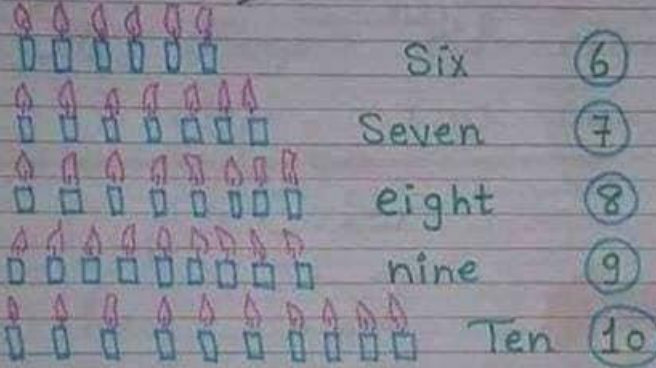 Six 6
Seven 7
eight 8
nine 9
Ten 10